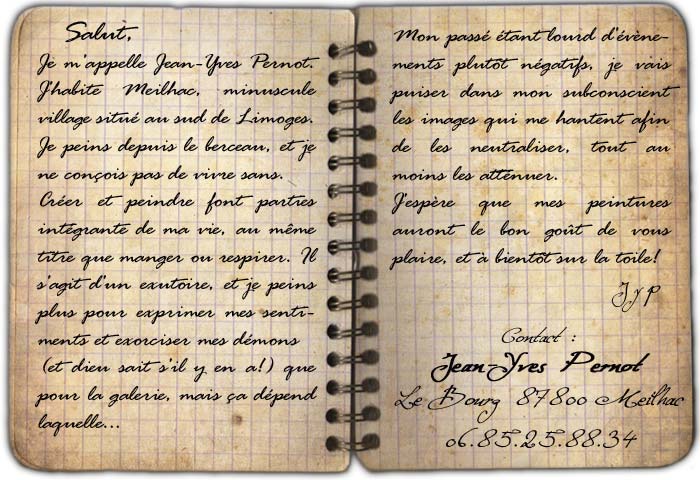 Salut,
Je m'appelle Jean-Yves Pernot.
J'habite Meilhac, minuscule
village situé au sud de Limoges.
Je peins depuis le berceau, et je
ne conçois pas de vivre sans.
Créer et peindre font parties
intégrante de ma vie, au même
titre que manger ou respirer. Il
s'agit d'un exutoire, et je peins
plus pour exprimer mes senti-
ments et exorciser mes démons
(et dieu sait s'il y en a!) que
pour la galerie, mais ça dépend
laquelle...
Mon passé étant lourd d'évène-
ments plutôt négatifs, je vais
puiser dans mon subconscient
les images qui me hantent afin
de les neutraliser, tout au
moins les atténuer.
J'espère que mes peintures
auront le bon goût de vous
plaire, et à bientôt sur la toile!
J y P
Contact :
Jean-Yves Pernot
Le Bourg 87800 Meilhac
06.85.25.88.34